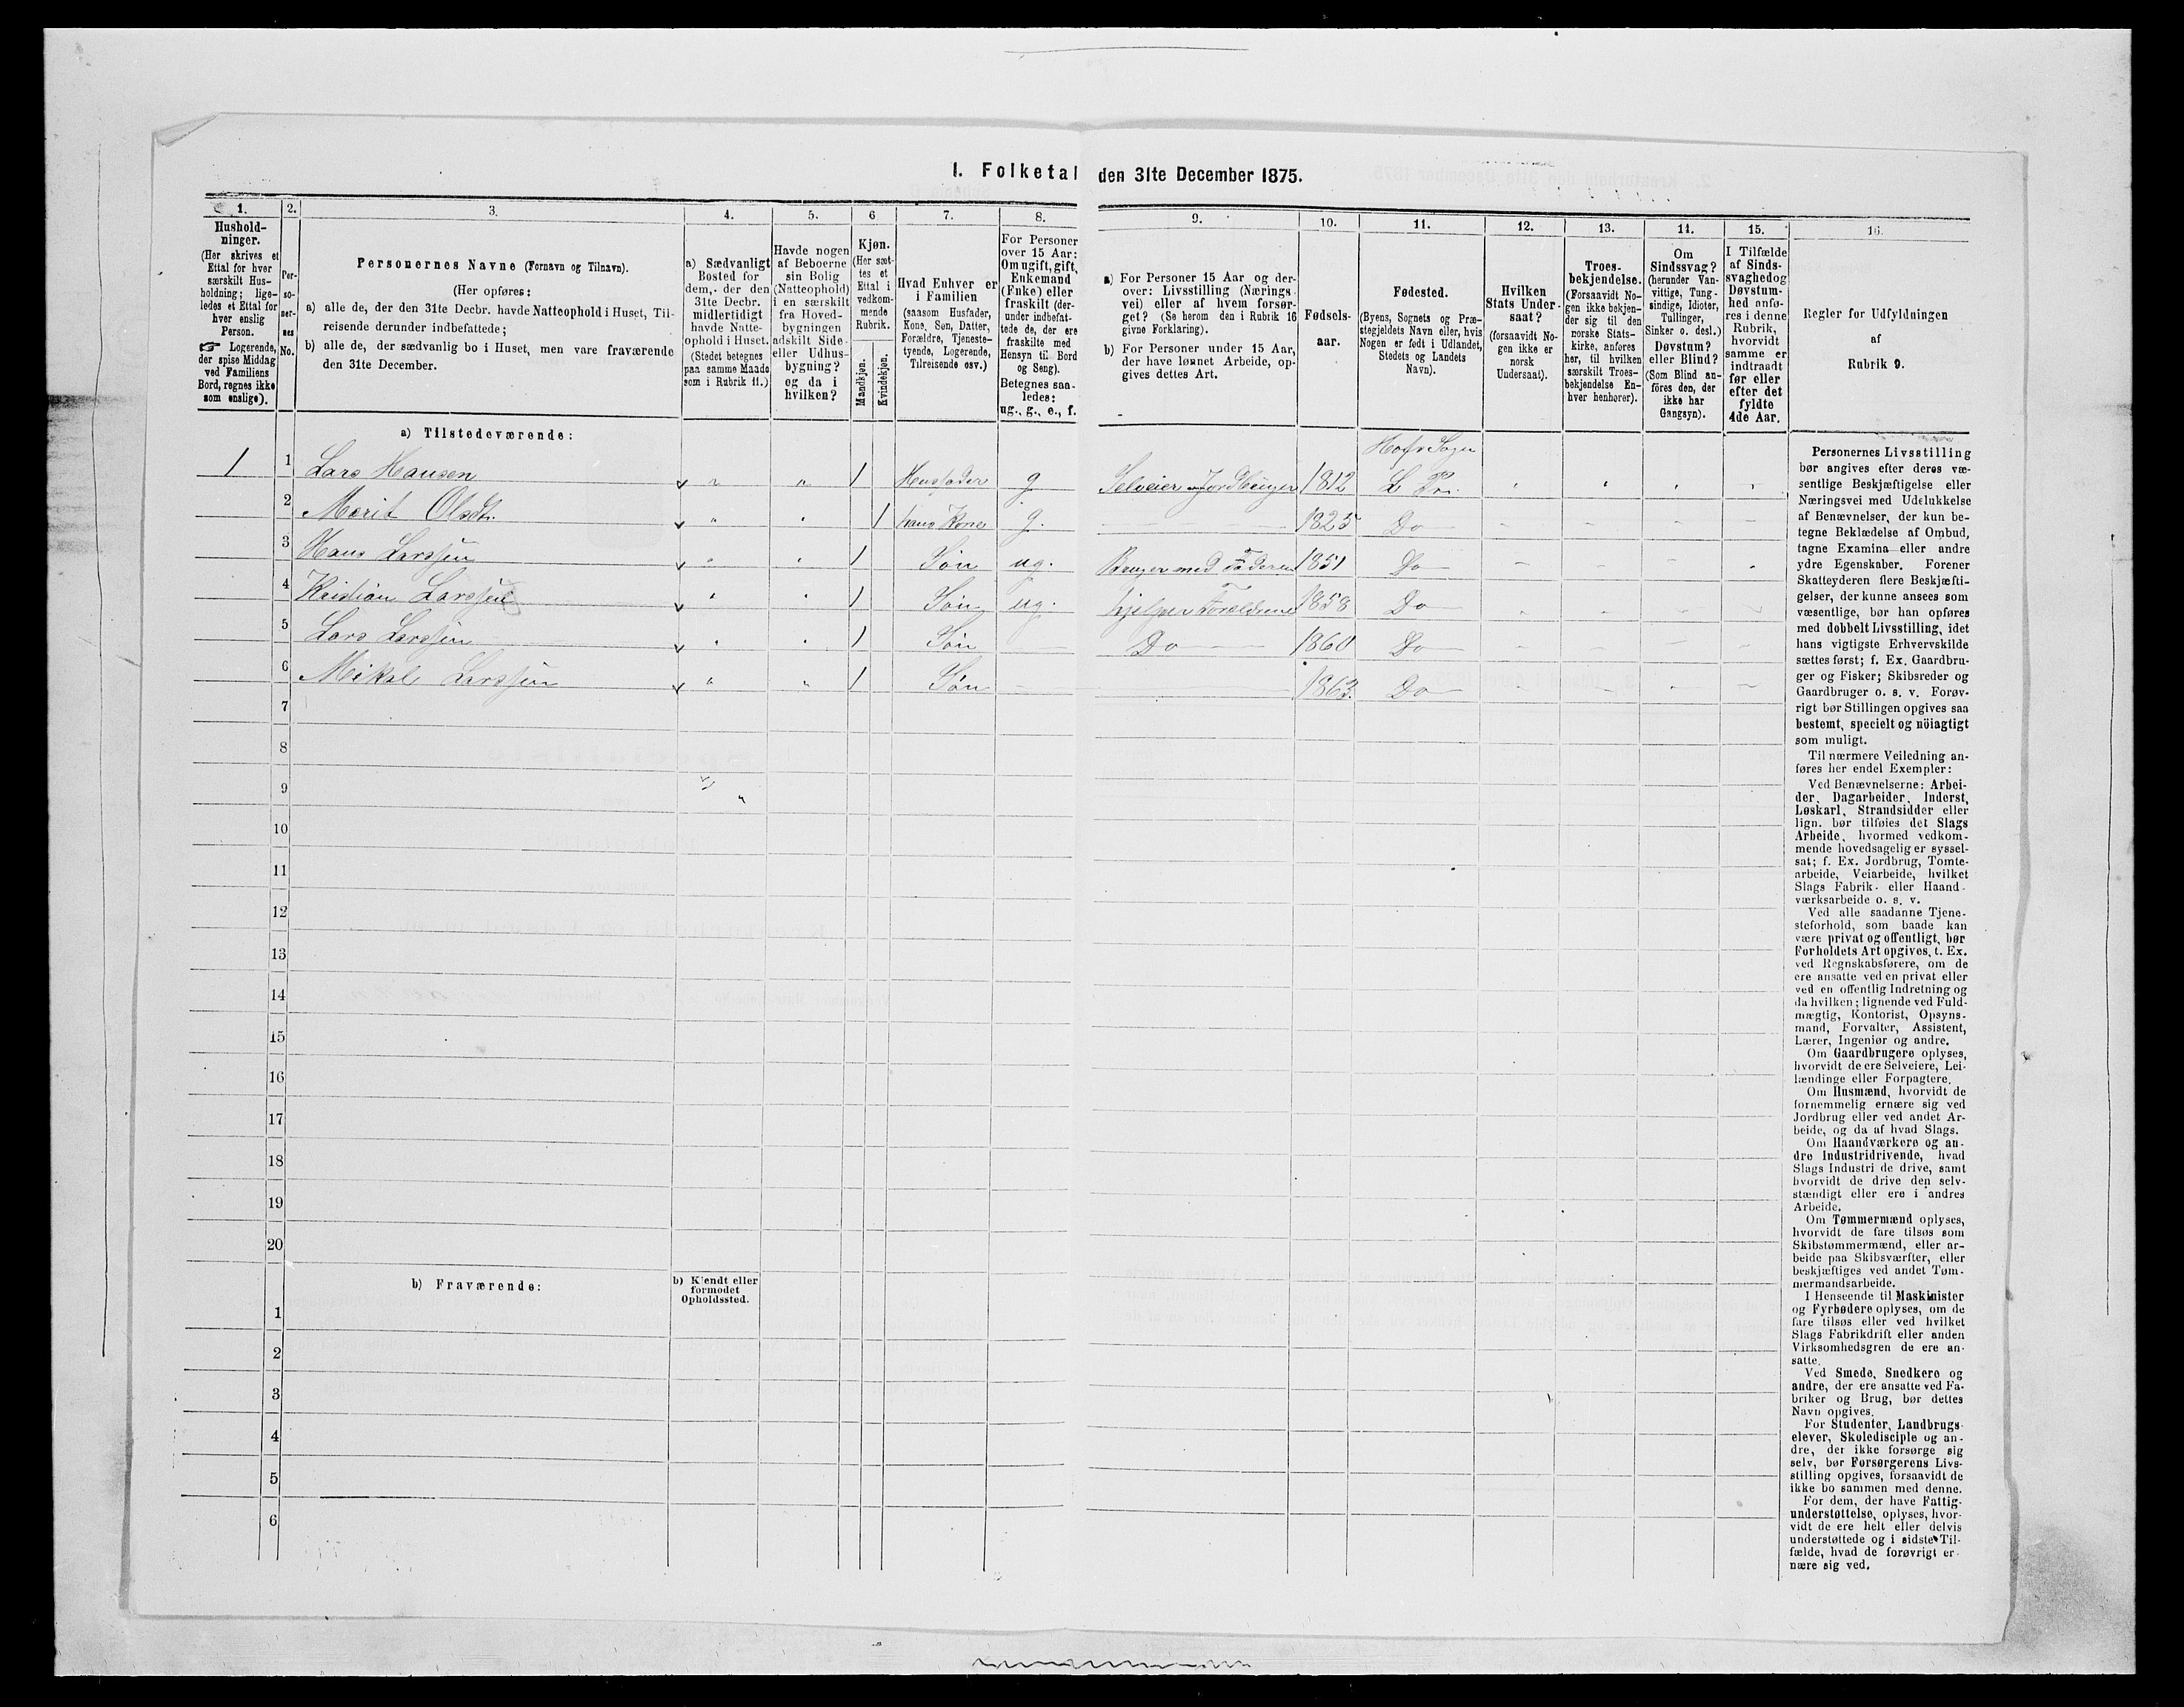 I. Folketal den 31te December 1875.
1.
Hushold-
ninger.
(Her skrives et
Ettal for hver
særskilt Hus-
holdning; lige-
ledes et Ettal for
hver enslig
Person.
☞ Logerende,
der spise Middag
ved Familiens
Bord, regnes ikke
som enslige).
2.
Per-
so-
ner-
nes
No.
3.
Personernes Navne (Fornavn og Tilnavn).
(Her opføres:
a) alle de, der den 31te Decbr. havde Natteophold i Huset, Til-
reisende derunder indbefattede;
b) alle de, der sædvanlig bo i Huset, men vare fraværende
den 31te December.
4.
a) Sædvanligt
Bosted for
dem, der den
31te Decbr.
midlertidigt
havde Natte-
ophold i Huset.
(Stedet betegnes
paa samme Maade
som i Rubrik 11.)
5.
Havde nogen
af Beboerne
sin Bolig
(Natteophold)
i en særskilt
fra Hoved-
bygningen
adskilt Side-
eller Udhus-
bygning?
og da i
hvilken?
6
Kjøn.
(Her sæt-
tes et
Ettal i
vedkom-
mende
Rubrik.
Mandkjøn.
Kvindekjøn.
7.
Hvad Enhver er
i Familien
(saasom Husfader,
Kone, Søn, Datter,
Forældre, Tjeneste-
tyende, Logerende,
Tilreisende osv.)
8.
For Personer
over 15 Aar:
Om ugift, gift,
Enkemand
(Enke) eller
fraskilt (der-
under indbefat-
tede de, der ere
fraskilte med
Hensyn til Bord
og Seng).
Betegnes saa-
ledes:
ug., g., e., f.
9.
a) For Personer 15 Aar og der-
over: Livsstilling (Nærings-
vei) eller af hvem forsør-
get? (Se herom den i Rubrik 16
givne Forklaring).
b) For Personer under 15 Aar,
der have lønnet Arbeide, op-
gives dettes Art.
10.
Fødsels-
aar.
11.
Fødested.
(Byens, Sognets og Præ-
stegjeldets Navn eller, hvis
Nogen er født i Udlandet,
Stedets og Landets
Navn).
12.
Hvilken
Stats Under-
saat?
(forsaavidt No-
gen ikke er
norsk
Undersaat).
13.
Troes-
bekjendelse.
(Forsaavidt No-
gen ikke bekjen-
der sig til den
norske Stats-
kirke, anføres
her, til hvilken
særskilt Troes-
bekjendelse En-
hver henhører).
14.
Om
Sindssvag?
(herunder Van-
vittige, Tung-
sindige, Idioter,
Tullinger,
Sinker o. desl.)
Døvstum?
eller Blind?
(Som Blind an-
föres den, der
ikke har
Gangsyn).
15.
I Tilfælde
af Sinds-
svaghed og
Døvstum-
hed anfø-
res i denne
Rubrik,
hvorvidt
samme er
indtraadt
før eller
efter det
fyldte
4de Aar.
16.
Regler for Udfyldningen
af
Rubrik 9.
a) Tilstedeværende:
1 1 Lars Hansen 1 Husfader g Selveier 1812
2 Marit Olsdt. 1 hans Kone g. 1825 Do
3 Hans Larssen 1 Søn ug. Bruger med Faderen 1851 Do
4 Kristian Larssen 1 Søn ug. hjelper Forældrene 1858 Do
5 Lars Larssen 1 Søn Do 1860 Do
6 Mikal Larssen 1 Søn 1863. Do
7
8
9
10
11
12
13
14
15
16
17
18
19
20
b) Fraværende:
b) Kjendt eller
formodet
Opholdssted.
1
2
3
4
5
6
Personernes Livsstilling
bør angives efter deres væ-
sentlige Beskjæftigelse eller
Næringsvei med Udelukkelse
af Benævnelser, der kun be-
tegne Beklædelse af Ombud,
tagne Examina eller andre
ydre Egenskaber. Forener
Skatteyderen flere Beskjæfti-
gelser, der kunne ansees som
væsentlige, bør han opføres
med dobbelt Livsstilling, idet
hans vigtigste Erhvervskilde
sættes først; f. Ex. Gaardbru-
ger og Fisker; Skibsreder og
Gaardbruger o. s. v. Forøv-
rigt bør Stillingen opgives saa
bestemt, specielt og nöiagtigt
som muligt.
Til nærmere Veiledning an-
føres her endel Exempler:
Ved Benævnelserne: Arbei-
der, Dagarbeider, Inderst,
Løskarl, Strandsidder eller
lign. bør tilføies det Slags
Arbeide, hvormed vedkom-
mende hovedsagelig er syssel-
sat; f. Ex. Jordbrug, Tomte-
arbeide, Veiarbeide, hvilket
Slags Fabrik- eller Haand-
værksarbeide o. s. v.
Ved alle saadanne Tjene-
steforhold, som baade kan
være privat og offentligt, bør
Forholdets Art opgives, t. Ex.
ved Regnskabsførere, om de
ere ansatte ved en privat eller
ved en offentlig Indretning og
da hvilken; lignende ved Fuld-
mægtig, Kontorist, Opsyns-
mand, Forvalter, Assistent,
Lærer, Ingeniør og andre.
Om Gaardbrugere oplyses,
hvorvidt de ere Selveiere, Lei-
lændinge eller Forpagtere.
Om Husmænd, hvorvidt de
fornemmelig ernære sig ved
Jordbrug eller ved andet Ar-
beide, og da af hvad Slags.
Om Haandværkere og an-
dre Industridrivende, hvad
Slags Industri de drive, samt
hvorvidt de drive den selv-
stændigt eller ere i andres
Arbeide.
Om Tømmermænd oplyses,
hvorvidt de fare tilsøs som
Skibstømmermænd, eller ar-
beide paa Skibsværfter, eller
beskjæftiges ved andet Tøm-
mermandsarbeide.
I Henseende til Maskinister
og Fyrbødere oplyses, om de
fare tilsøs eller ved hvilket
Slags Fabrikdrift eller anden
Virksomhedsgren de ere an-
satte.
Ved Smede, Snedkere og
andre, der ere ansatte ved Fa-
briker og Brug, bør dettes
Navn opgives.
For Studenter, Landbrugs-
elever, Skoledisciple og an-
dre, der ikke forsørge sig
selv, bør Forsørgerens Livs-
stilling opgives, forsaavidt de
ikke bo sammen med denne.
For dem, der have Fattig-
understøttelse, oplyses, hvor-
vidt de ere helt eller delvis
understøttede og i sidste Til-
fælde, hvad de forøvrigt er-
nære sig ved.